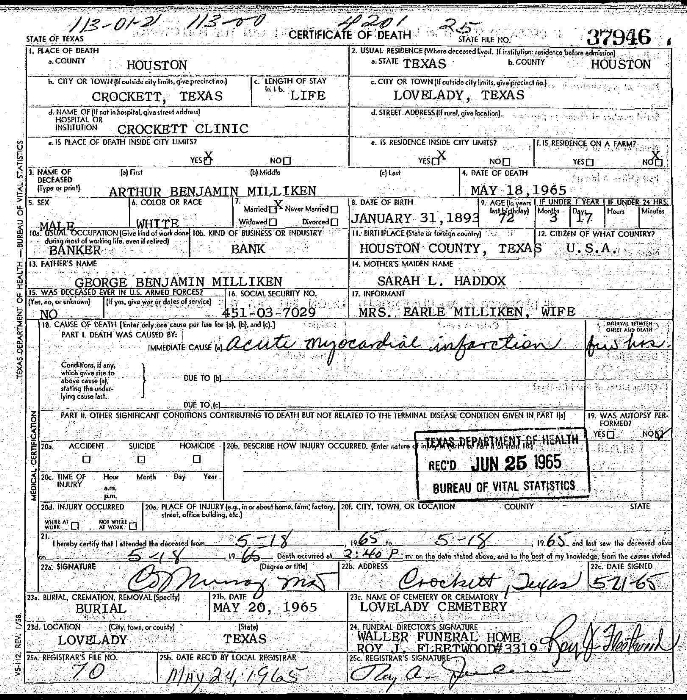 113-01-21 113-00 4201 25
STATE OF TEXAS CERTIFICATE OF DEATH STATE FILE NO. 37946
1. PLACE OF DEATH
a. COUNTY HOUSTON
2. USUAL RESIDENCE (Where deceased lived. If institution: residence before admission)
a. STATE TEXAS b. COUNTY HOUSTON
b. CITY OR TOWN (If outside city limits, give precinct no.) CROCKETT, TEXAS
c. LENGTH OF STAY in 1 b. LIFE
c. CITY OR TOWN (If outside city limits, give precinct no.) LOVELADY, TEXAS
d. NAME OF (If not in hospital, give street address) HOSPITAL OR INSTITUTION CROCKETT CLINIC
d. STREET ADDRESS (If rural, give location)
e. IS PLACE OF DEATH INSIDE CITY LIMITS? YES X NO
e. IS RESIDENCE INSIDE CITY LIMITS? YES X NO
f. IS RESIDENCE ON A FARM? YES NO X
3. NAME OF DECEASED (Type or print) (a) First (b) Middle (c) Last
ARTHUR BENJAMIN MILLIKEN
4. DATE OF DEATH MAY 18, 1965
5. SEX MALE
6. COLOR OR RACE WHITE
7. Married X Never Married Widowed Divorced
8. DATE OF BIRTH JANUARY 31, 1893
9. AGE (In years last birthday) 72
IF UNDER 1 YEAR Months 3 Days 17
IF UNDER 24 HRS. Hours Minutes
10a. USUAL OCCUPATION (Give kind of work done during most of working life, even if retired) BANKER
10b. KIND OF BUSINESS OR INDUSTRY BANK
11. BIRTHPLACE (State or foreign country) HOUSTON COUNTY, TEXAS
12. CITIZEN OF WHAT COUNTRY? U.S.A.
13. FATHER'S NAME GEORGE BENJAMIN MILLIKEN
14. MOTHER'S MAIDEN NAME SARAH L. HADDOX
15. WAS DECEASED EVER IN U.S. ARMED FORCES? (Yes, no, or unknown) (If yes, give war or dates of service) NO
16. SOCIAL SECURITY NO. 451-03-7029
17. INFORMANT MRS. EARLE MILLIKEN, WIFE
18. CAUSE OF DEATH [Enter only one cause per line for (a), (b), and (c).]
INTERVAL BETWEEN ONSET AND DEATH
PART I. DEATH WAS CAUSED BY:
IMMEDIATE CAUSE (a) acute myocardial infarction few hrs.
Conditions, if any, which give rise to above cause (a), stating the underlying cause last.
DUE TO (b)
DUE TO (c)
PART II. OTHER SIGNIFICANT CONDITIONS CONTRIBUTING TO DEATH BUT NOT RELATED TO THE TERMINAL DISEASE CONDITION GIVEN IN PART I(a)
19. WAS AUTOPSY PERFORMED? YES NO X
20a. ACCIDENT SUICIDE HOMICIDE
20b. DESCRIBE HOW INJURY OCCURRED. (Enter nature of
TEXAS DEPARTMENT OF HEALTH
REC'D JUN 25 1965
BUREAU OF VITAL STATISTICS
20c. TIME OF INJURY Hour a.m. p.m. Month Day Year
20d. INJURY OCCURRED WHILE AT WORK NOT WHILE AT WORK
20e. PLACE OF INJURY (e.g., in or about home, farm, factory, street, office building, etc.)
20f. CITY, TOWN, OR LOCATION COUNTY STATE
21. I hereby certify that I attended the deceased from 5-18, 1965 to 5-18, 1965 and last saw the deceased alive
on 5-18 1965 Death occurred at 2:40 P. m. on the date stated above, and to the best of my knowledge, from the causes stated.
22a. SIGNATURE (Degree or title) Murray MD
22b. ADDRESS Crockett, Texas
22c. DATE SIGNED 5-21-65
23a. BURIAL, CREMATION, REMOVAL (Specify) BURIAL
23b. DATE MAY 20, 1965
23c. NAME OF CEMETERY OR CREMATORY LOVELADY CEMETERY
23d. LOCATION (City, town, or county) (State) LOVELADY TEXAS
24. FUNERAL DIRECTOR'S SIGNATURE
WALLER FUNERAL HOME
ROY J. FLEETWOOD #3319 Roy J Fleetwood
25a. REGISTRAR'S FILE NO. 70
25b. DATE REC'D BY LOCAL REGISTRAR May 24, 1965
25c. REGISTRAR'S SIGNATURE
TEXAS DEPARTMENT OF HEALTH — BUREAU OF VITAL STATISTICS
MEDICAL CERTIFICATION
VS-112. REV. 1/58.